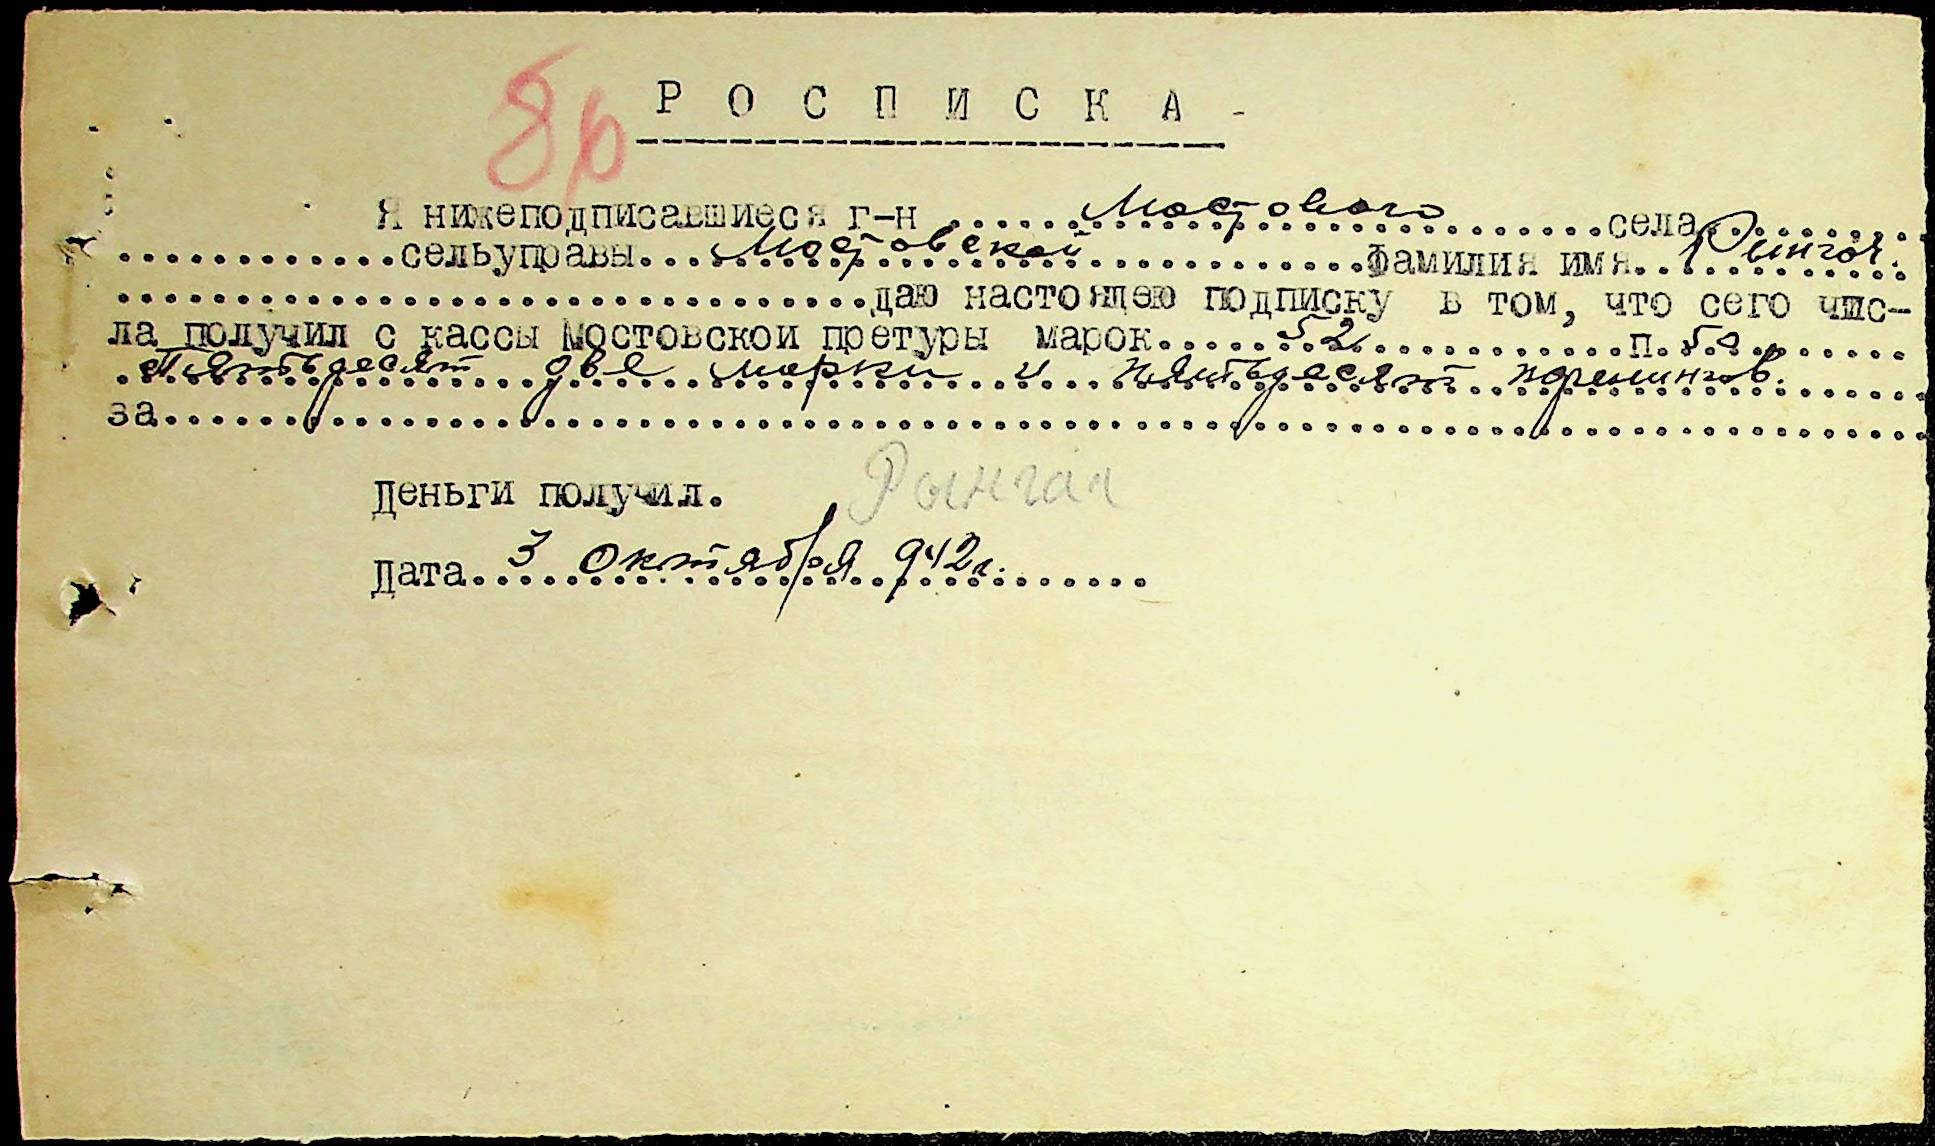 РОСПИСКА -
Я нижеподписавшиеся г-н ..... Мостового ..... села.....
.....сельуправы... Мостовской .....Фамилия имя.. Рынгач.
.....даю настоящею подписку в том, что сего чис-
ла получил с кассы Мостовской претуры марок..... 52 .....п. 50 .....
Пятьдесят две марки и пятьдесят пфенингов.
за.....
Деньги получил. Рынгач
Дата... 3 Октября 942г.